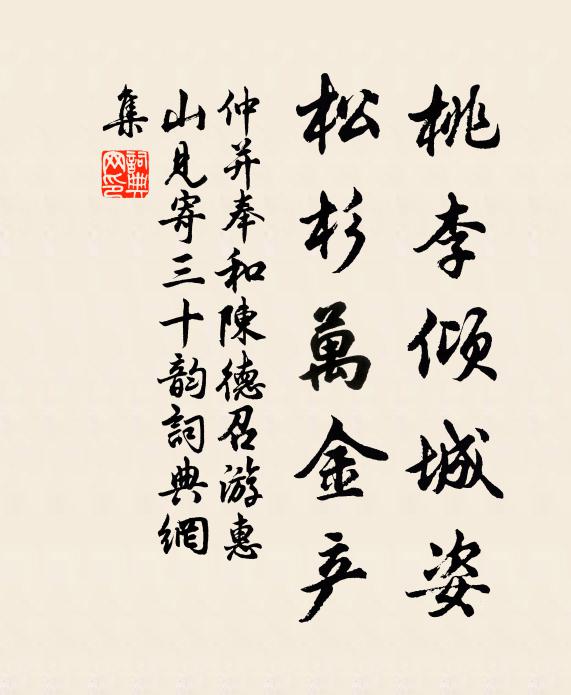 桃李倾城姿
松杉萬金产
仲并奉和陳德召游惠
山見寄三十韵詞典網
集
詞典网印